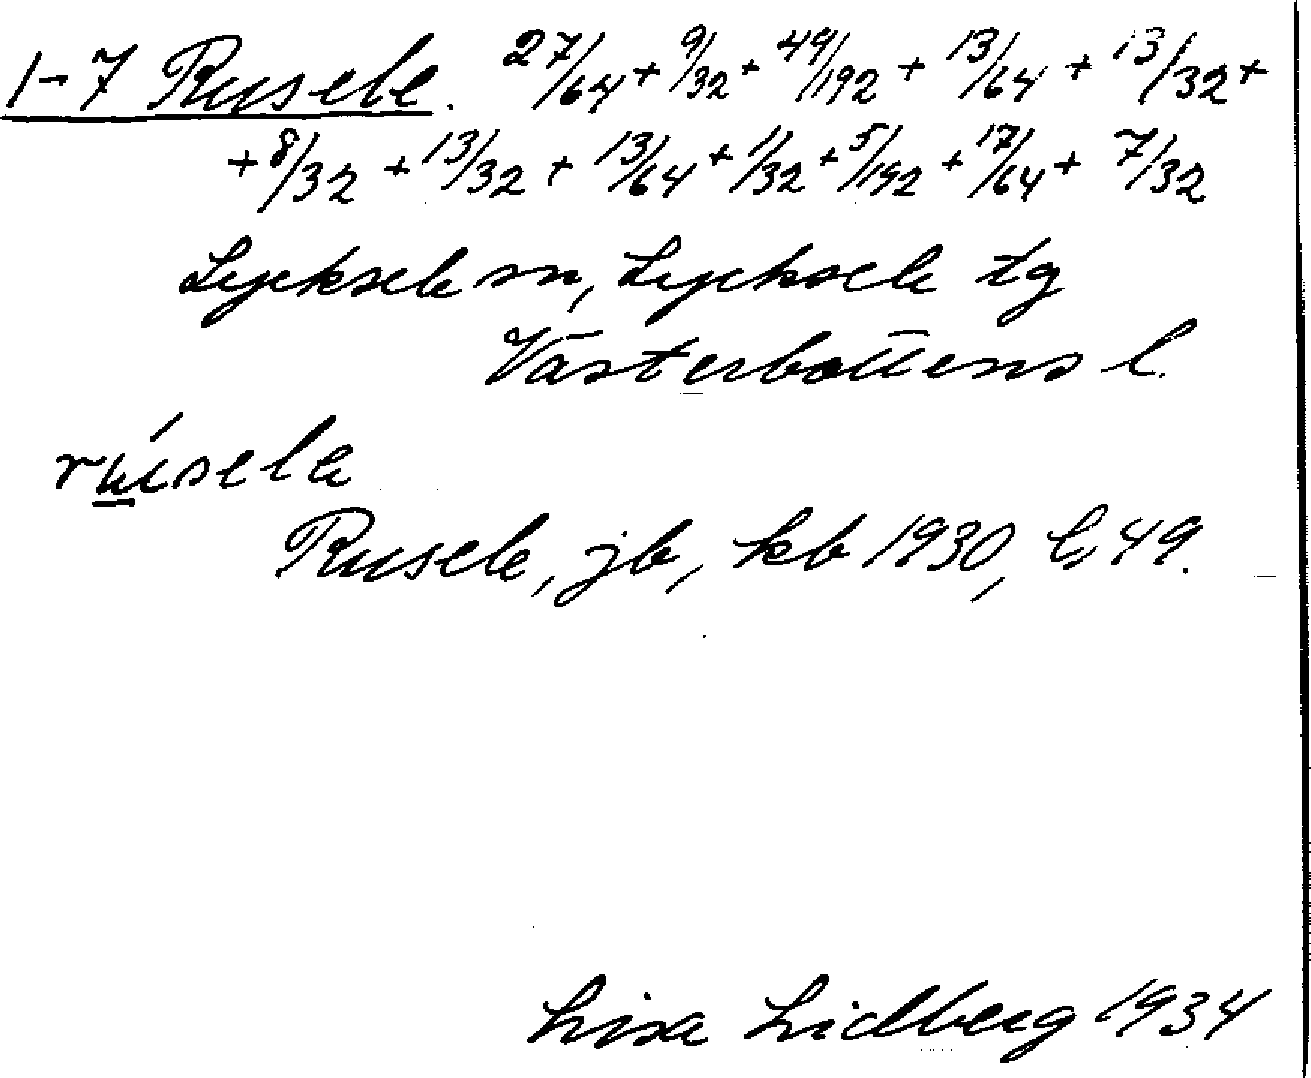 1-7 Rusele. 27/64 + 9/32 + 49/192 + 13/64 + 13/32 +
+ 8/32 + 13/32 + 13/64 + 11/32 + 5/192 + 17/64 + 7/32
Lycksele sn, Lycksele tg
Västerbottens l.
rúsele
Rusele, jb, kb 1930, bl 49.
Lisa Lidberg 1934